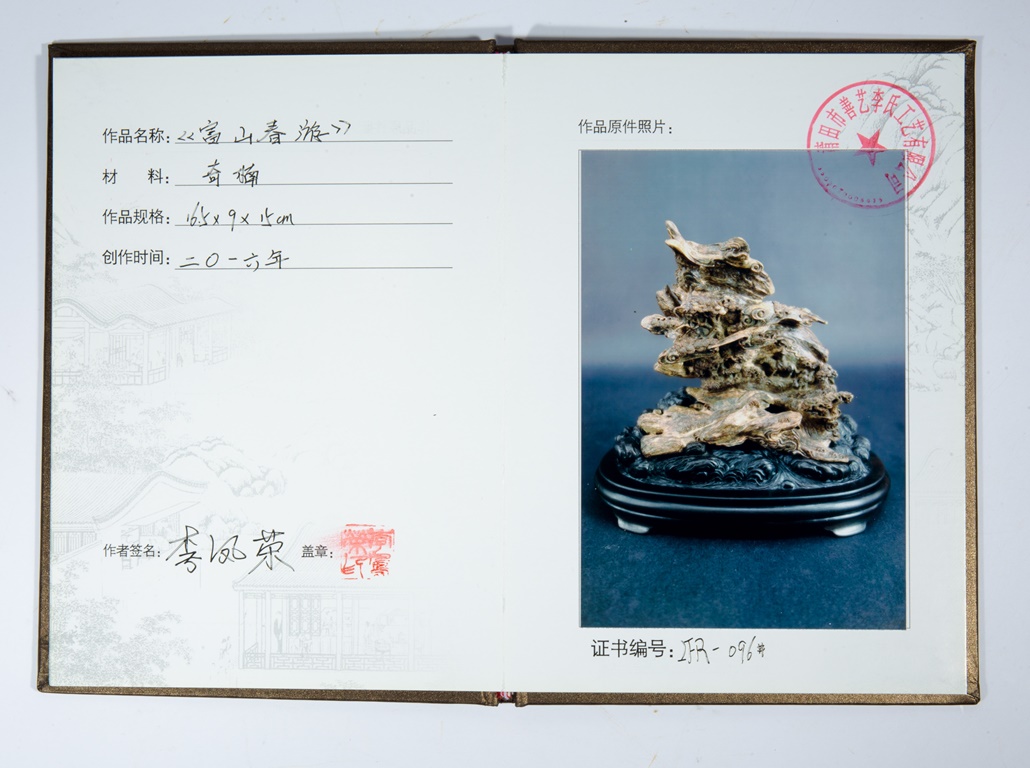 作品名称:《富山春游》
材 料: 奇楠
作品规格: 16.5x9x15cm
创作时间: 二〇一六年
作者签名: 李凤荣 盖章:
作品原件照片:
莆田市善艺李氏工艺有限公司
证书编号: LFR-096#